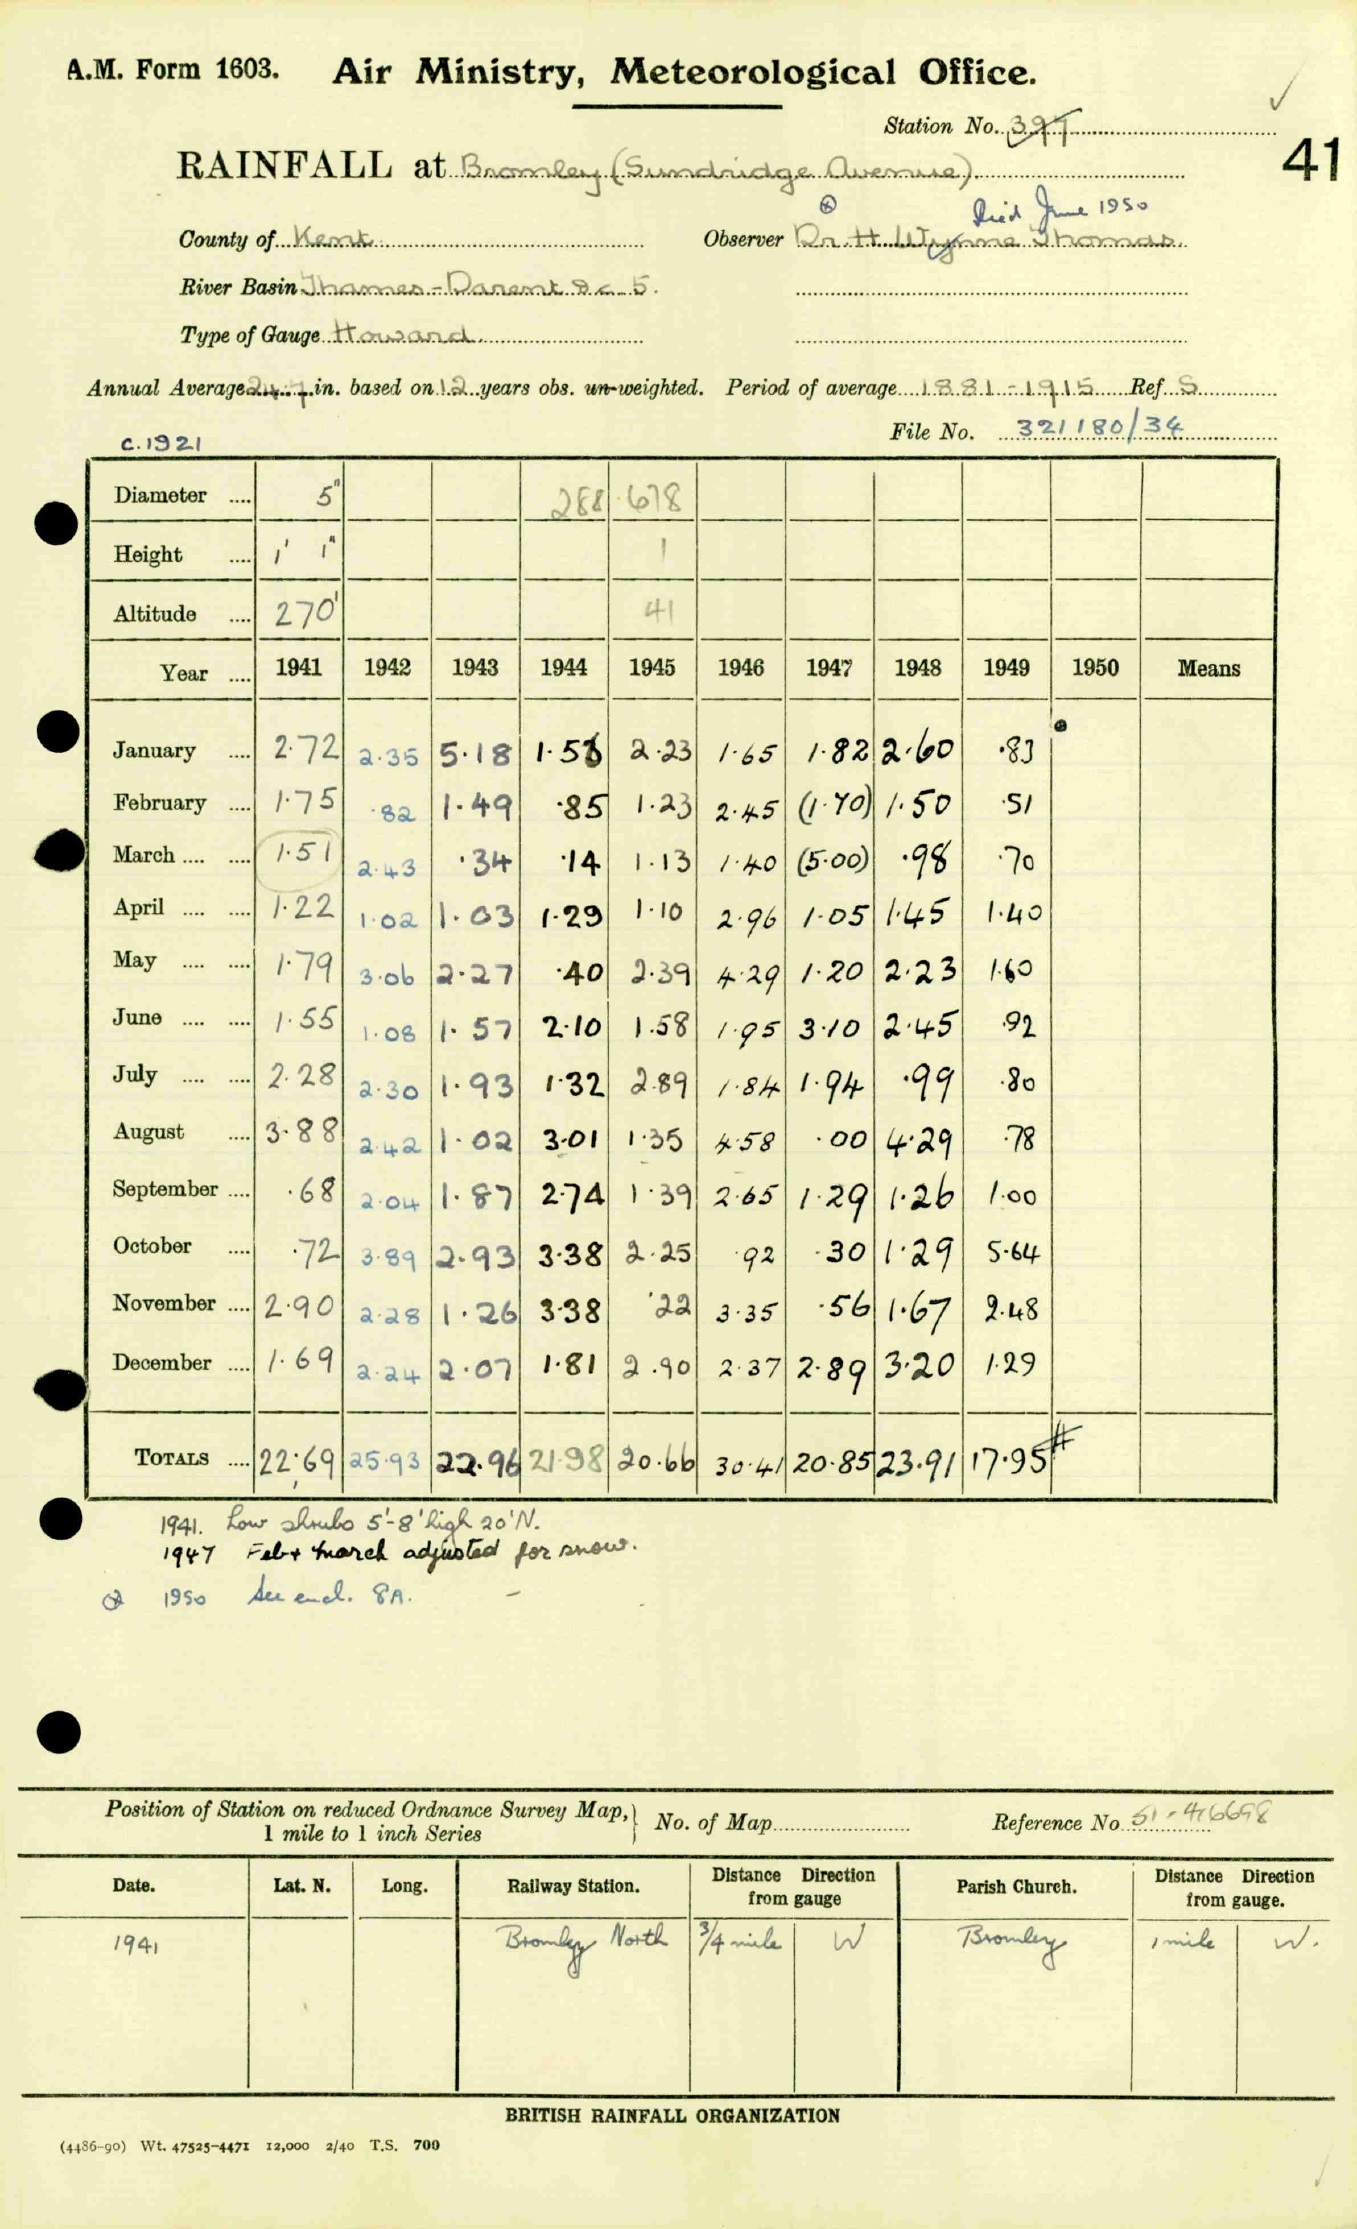 A.M. Form 1603. Air Ministry, Meteorological Office.
Station No. 397
41
RAINFALL at Bromley (Sundridge Avenue)
Died June 1950
County of Kent Observer Dr. H. Wynne Thomas.
River Basin Thames - Darent &c 5.
Type of Gauge Howard
Annual Average 24.7 in. based on 12 years obs. un-weighted. Period of average 1881-1915 Ref S
File No. 321180/34
c.1921
Diameter .... 5" 288 678
Height .... 1' 1" 1
Altitude .... 270' 41
Year .... 1941 1942 1943 1944 1945 1946 1947 1948 1949 1950 Means
January .... 2.72 2.35 5.18 1.56 2.23 1.65 1.82 2.60 .83
February .... 1.75 .82 1.49 .85 1.23 2.45 (1.70) 1.50 .51
March .... .... 1.51 2.43 .34 .14 1.13 1.40 (5.00) .98 .70
April .... .... 1.22 1.02 1.03 1.29 1.10 2.96 1.05 1.45 1.40
May .... .... 1.79 3.06 2.27 .40 2.39 4.29 1.20 2.23 1.60
June .... .... 1.55 1.08 1.57 2.10 1.58 1.95 3.10 2.45 .92
July .... .... 2.28 2.30 1.93 1.32 2.89 1.84 1.94 .99 .80
August .... 3.88 2.42 1.02 3.01 1.35 4.58 .00 4.29 .78
September .... .68 2.04 1.87 2.74 1.39 2.65 1.29 1.26 1.00
October .... .72 3.89 2.93 3.38 2.25 .92 .30 1.29 5.64
November .... 2.90 2.28 1.26 3.38 .22 3.35 .56 1.67 2.48
December .... 1.69 2.24 2.07 1.81 2.90 2.37 2.89 3.20 1.29
TOTALS .... 22.69 25.93 22.96 21.98 20.66 30.41 20.85 23.91 17.95 #
1941. Low shrubs 5'-8' high 20' N.
1947 Feb + March adjusted for snow.
1950 See encl. 8A.
Position of Station on reduced Ordnance Survey Map, 1 mile to 1 inch Series No. of Map Reference No 51-416698
Date. Lat. N. Long. Railway Station. Distance Direction from gauge Parish Church. Distance Direction from gauge.
1941 Bromley North 3/4 mile W Bromley 1 mile W.
BRITISH RAINFALL ORGANIZATION
(4486-90) Wt. 47525-4471 12,000 2/40 T.S. 700